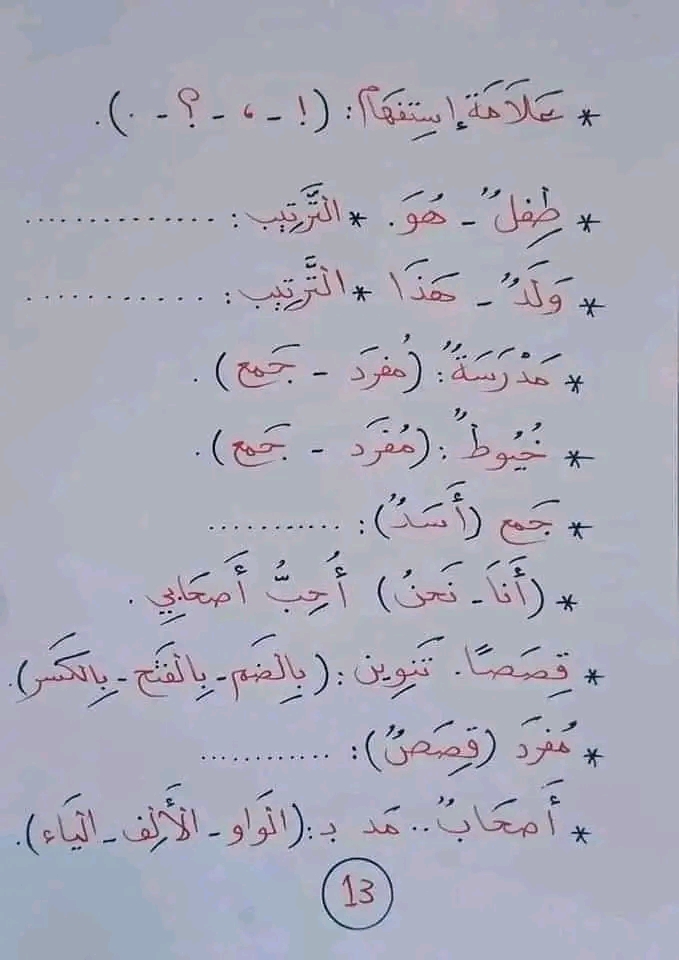 * عَلَامَة إِستِفهَام: (! - ، - ؟ - .).
* طِفلٌ - هُوَ. * الْتَّرتِيب: ..............
* وَلَدٌ - هَذَا * الْتَّرتِيب: ............
* مَدْرَسَةٌ: (مُفرَد - جَمع).
* خُيُوطٌ: (مُفرَد - جَمع).
* جَمع (أَسَدٌ): ...........
* (أَنَا - نَحنُ) أُحِبُّ أَصحَابِي.
* قِصَصًا. تَنوِين: (بِالضَم - بِالْفَتْح - بِالكَسر).
* مُفرَد (قِصَصٌ): ............
* أَصحَابٌ.. مَد بـ: (الْوَاو - الْأَلِف - اليَاء).
13